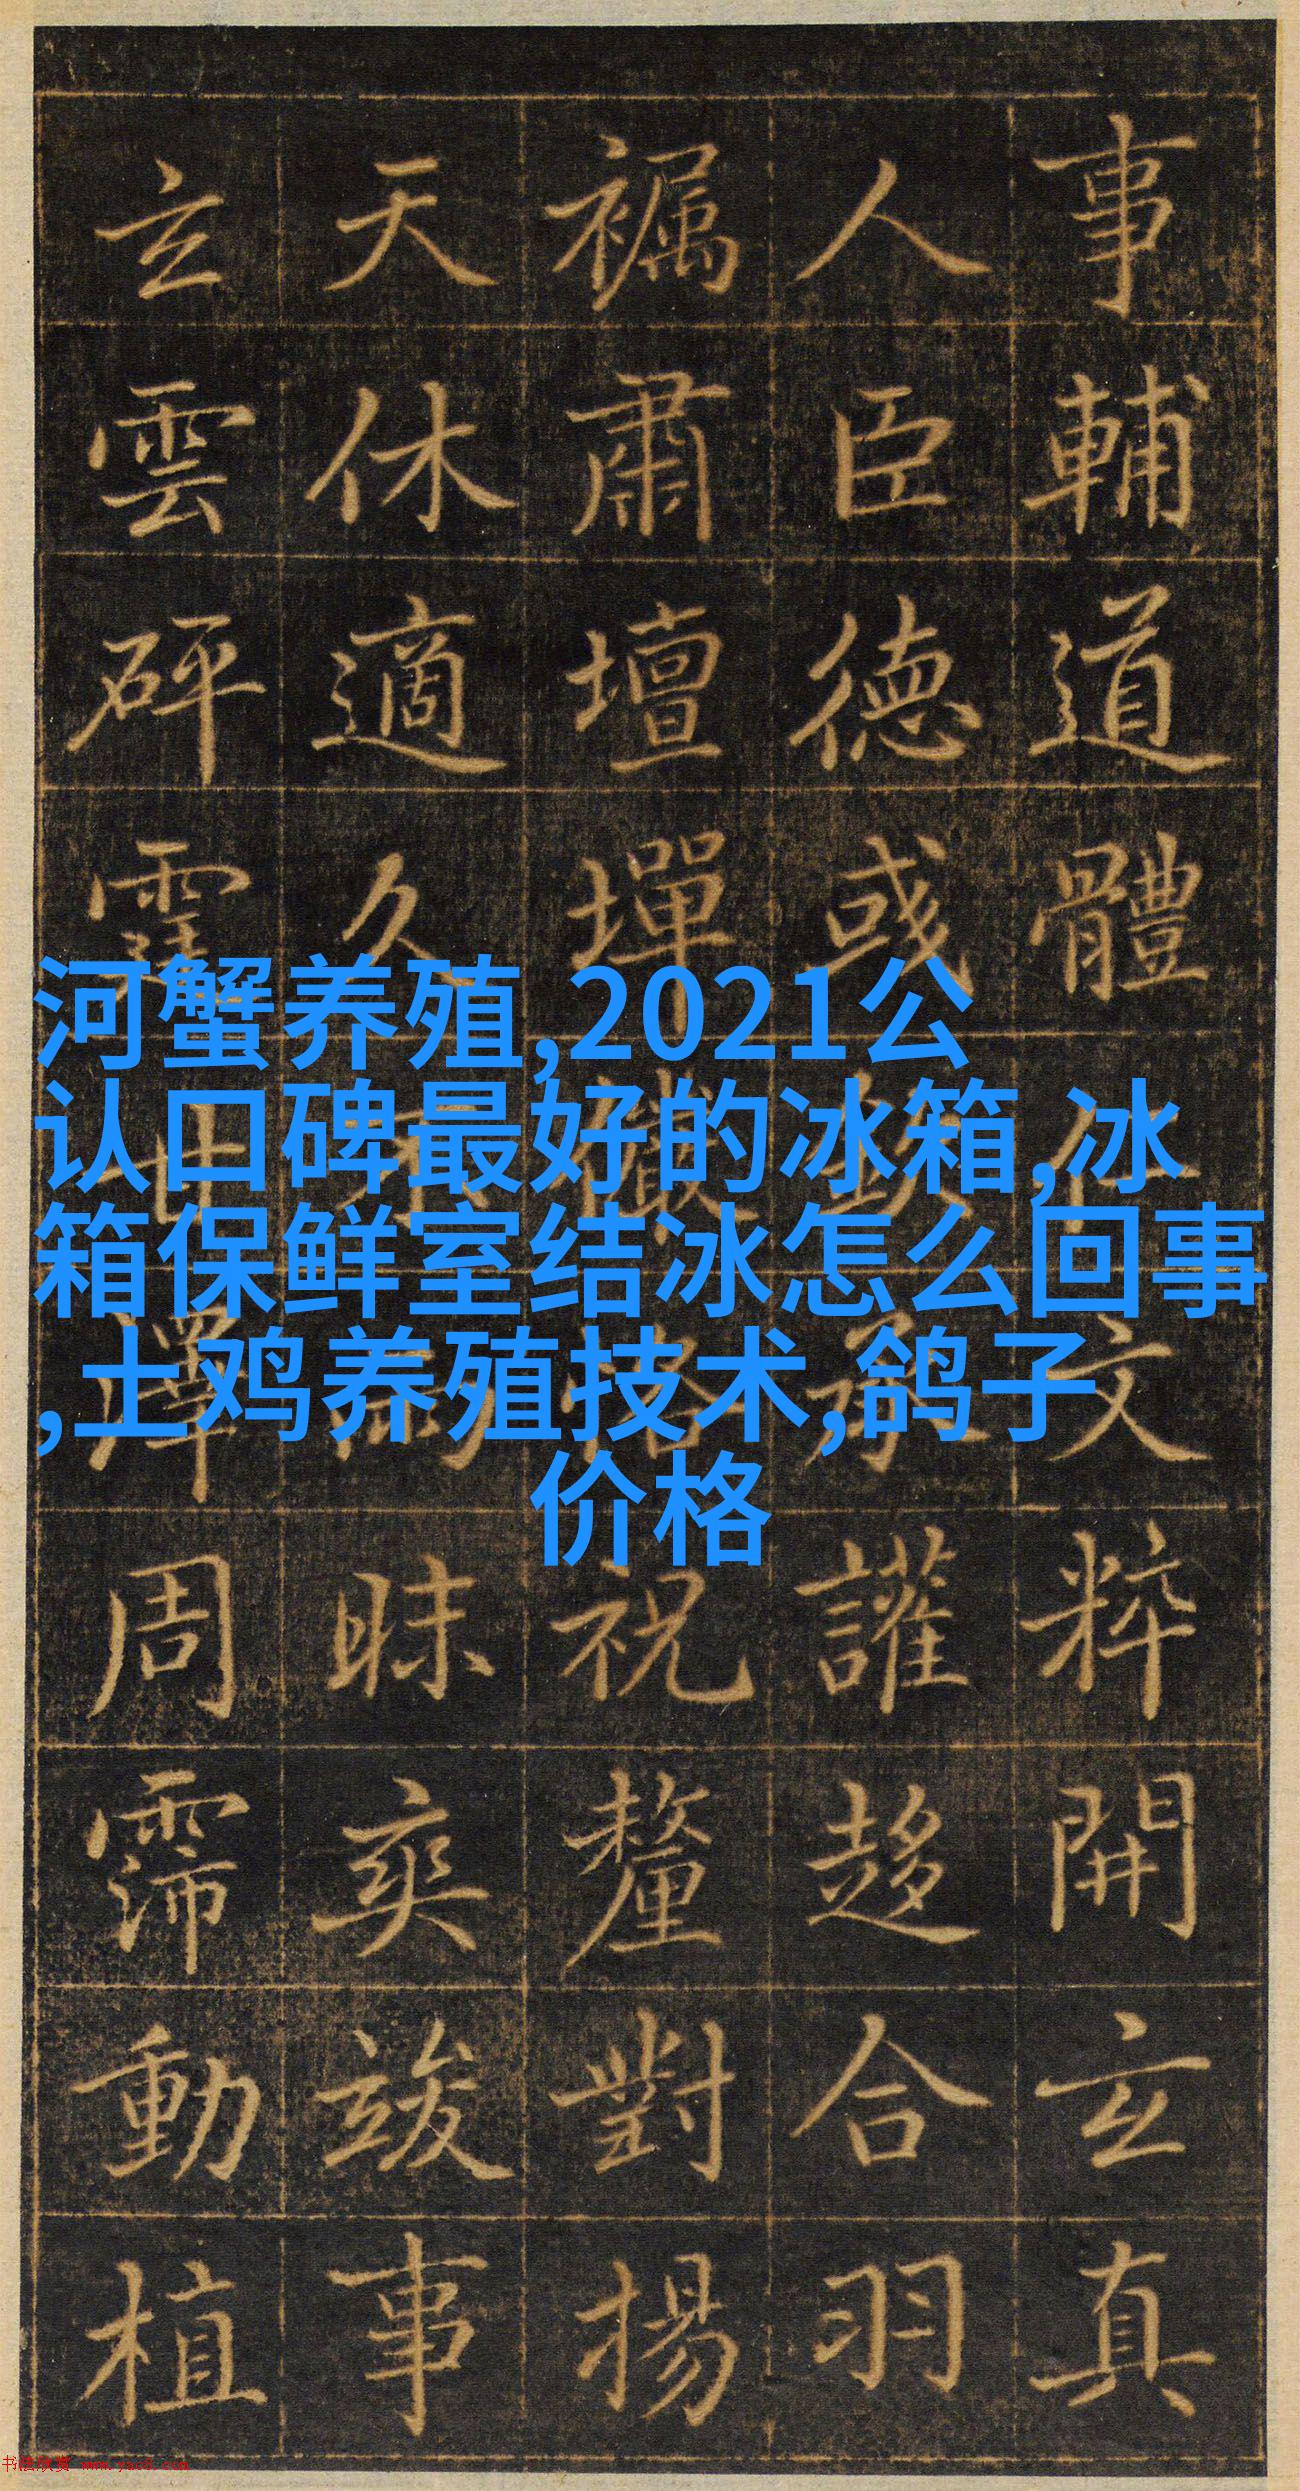 事輔道體仁文粹開玄真
人臣德或承讙趍合羽
肅壇墠恪祝釐對揚
天休適久昧爽竣事
玄雲砰霔澤周霈動植
河蟹养殖,2021公
认口碑最好的冰箱,冰
箱保鲜室结冰怎么回事
,土鸡养殖技术,鸽子
价格
书法欣赏 www.yac8.com